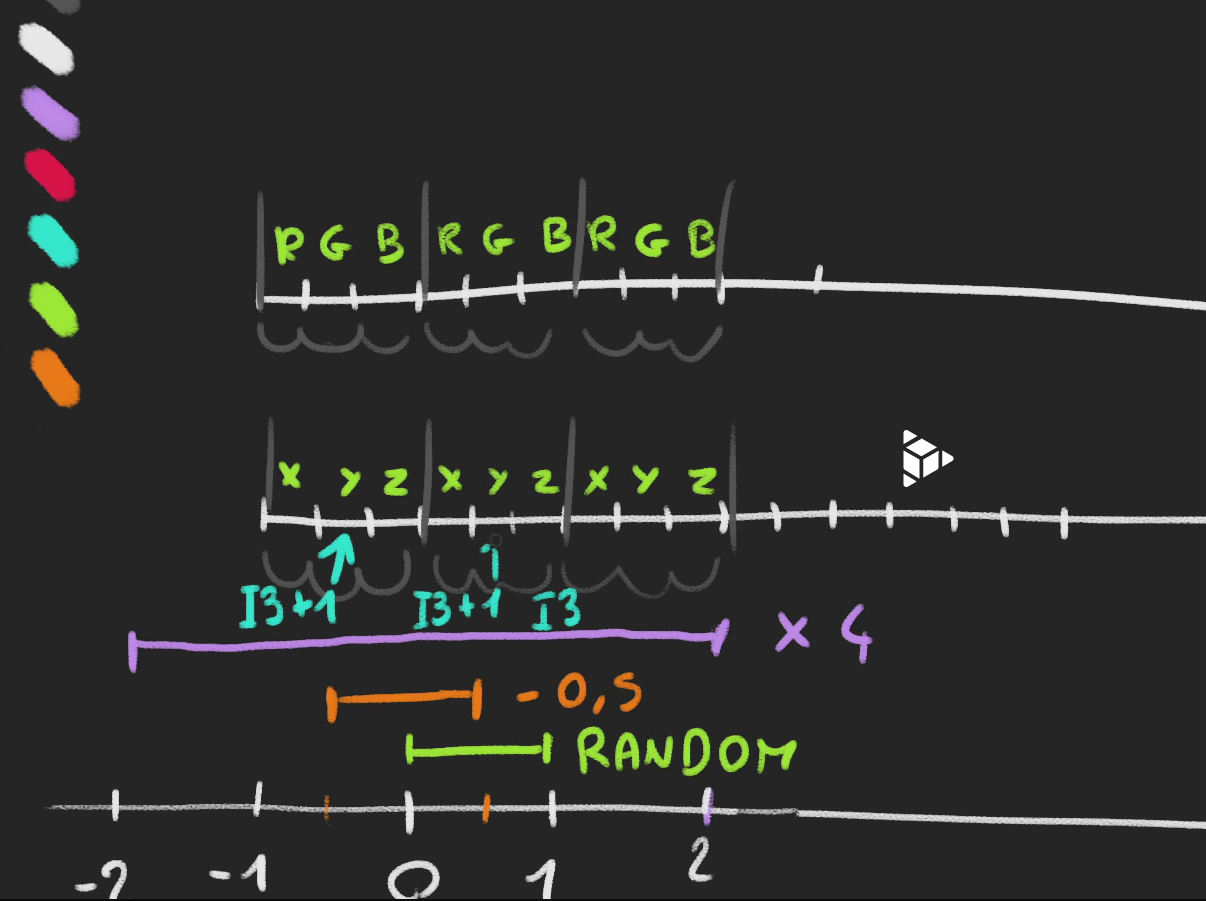 R G B R G B R G B
x y z x y z x y z
I3+1 I3+1 I3
x 4
- 0,5
RANDOM
-2 -1 0 1 2